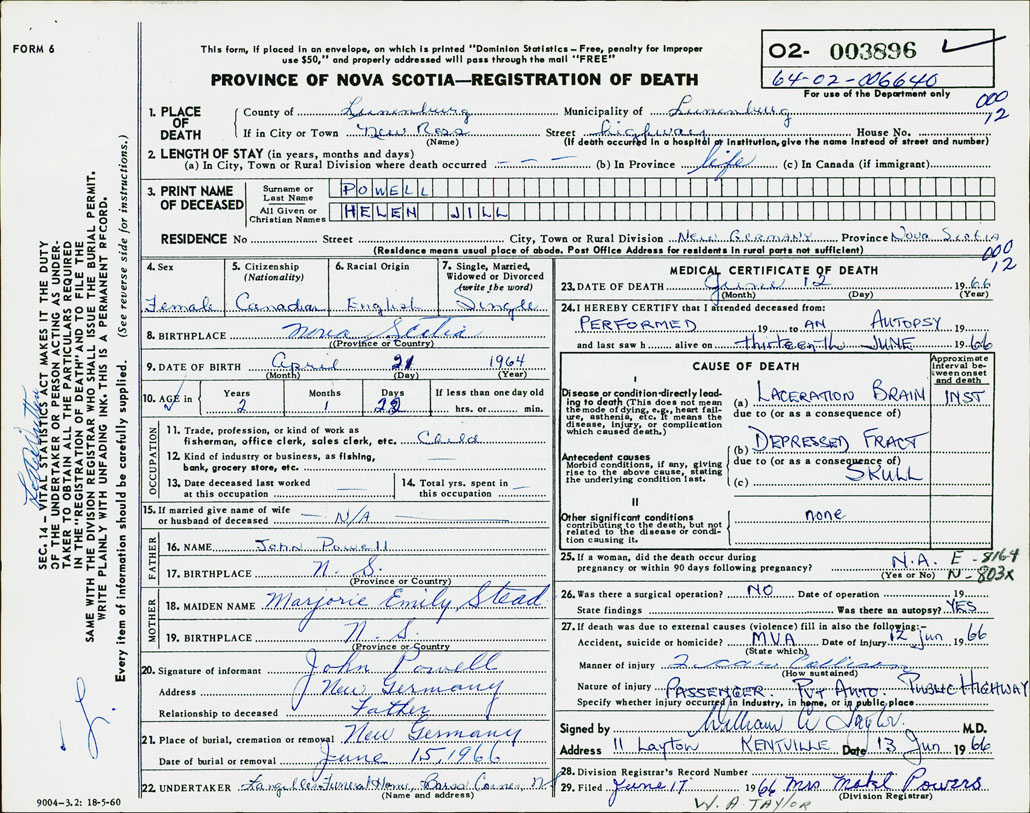 FORM 6
This form, if placed in an envelope, on which is printed "Dominion Statistics – Free, penalty for improper
use $50," and properly addressed will pass through the mail "FREE"
PROVINCE OF NOVA SCOTIA—REGISTRATION OF DEATH
02- 003896
64-02-006640
For use of the Department only
000
12
1. PLACE OF DEATH
County of Lunenburg Municipality of Lunenburg
If in City or Town New Ross Street highway House No.
(Name) (If death occurred in a hospital or institution, give the name instead of street and number)
2. LENGTH OF STAY (in years, months and days)
(a) In City, Town or Rural Division where death occurred – – – (b) In Province life (c) In Canada (if immigrant)
3. PRINT NAME OF DECEASED
Surname or Last Name POWELL
All Given or Christian Names HELEN JILL
RESIDENCE No Street City, Town or Rural Division NEW GERMANY Province NOVA SCOTIA
(Residence means usual place of abode. Post Office Address for residents in rural parts not sufficient)
000
12
4. Sex Female
5. Citizenship (Nationality) Canadian
6. Racial Origin English
7. Single, Married, Widowed or Divorced (write the word) Single
8. BIRTHPLACE Nova Scotia
(Province or Country)
9. DATE OF BIRTH April 21 1964
(Month) (Day) (Year)
10. AGE in Years 2 Months 1 Days 22 If less than one day old hrs. or min.
OCCUPATION
11. Trade, profession, or kind of work as
fisherman, office clerk, sales clerk, etc. Child
12. Kind of industry or business, as fishing,
bank, grocery store, etc. —
13. Date deceased last worked
at this occupation —
14. Total yrs. spent in
this occupation —
15. If married give name of wife
or husband of deceased – N/A –
FATHER
16. NAME John Powell
17. BIRTHPLACE N. S.
(Province or Country)
MOTHER
18. MAIDEN NAME Marjorie Emily Stead
19. BIRTHPLACE N. S.
(Province or Country)
20. Signature of informant John Powell
Address New Germany
Relationship to deceased Father
21. Place of burial, cremation or removal New Germany
Date of burial or removal June 15, 1966
22. UNDERTAKER Funeral Home, Corner, NS
(Name and address)
MEDICAL CERTIFICATE OF DEATH
23. DATE OF DEATH June 12 1966
(Month) (Day) (Year)
24. I HEREBY CERTIFY that I attended deceased from:
PERFORMED 19 to AN AUTOPSY 19
and last saw h alive on thirteenth JUNE 1966
CAUSE OF DEATH
Approximate interval between onset and death
I
Disease or condition directly leading to death (This does not mean the mode of dying, e.g., heart failure, asthenia, etc. It means the disease, injury, or complication which caused death.)
(a) LACERATION BRAIN INST
due to (or as a consequence of)
Antecedent causes
Morbid conditions, if any, giving rise to the above cause, stating the underlying condition last.
(b) DEPRESSED FRACT
due to (or as a consequence of)
(c) SKULL
II
Other significant conditions
contributing to the death, but not related to the disease or condition causing it.
none
25. If a woman, did the death occur during
pregnancy or within 90 days following pregnancy? N.A.
(Yes or No)
E - 8164
N - 803x
26. Was there a surgical operation? NO Date of operation 19
State findings Was there an autopsy? YES
27. If death was due to external causes (violence) fill in also the following:–
Accident, suicide or homicide? MVA Date of injury 12 Jun 1966
(State which)
Manner of injury 2 car Collision
(How sustained)
Nature of injury PASSENGER. PVT AUTO. PUBLIC HIGHWAY
Specify whether injury occurred in industry, in home, or in public place
Signed by William A Taylor M.D.
Address 11 Layton KENTVILLE Date 13 Jun 1966
28. Division Registrar's Record Number
29. Filed June 17 1966 Mrs Powers
(Division Registrar)
W. A TAYLOR
SEC. 14 – VITAL STATISTICS ACT MAKES IT THE DUTY
OF THE UNDERTAKER OR PERSON ACTING AS UNDER-
TAKER TO OBTAIN ALL THE PARTICULARS REQUIRED
IN THE "REGISTRATION OF DEATH" AND TO FILE THE
SAME WITH THE DIVISION REGISTRAR WHO SHALL ISSUE THE BURIAL PERMIT.
WRITE PLAINLY WITH UNFADING INK. THIS IS A PERMANENT RECORD.
Every item of information should be carefully supplied. (See reverse side for instructions.)
9004–3.2: 18-5-60